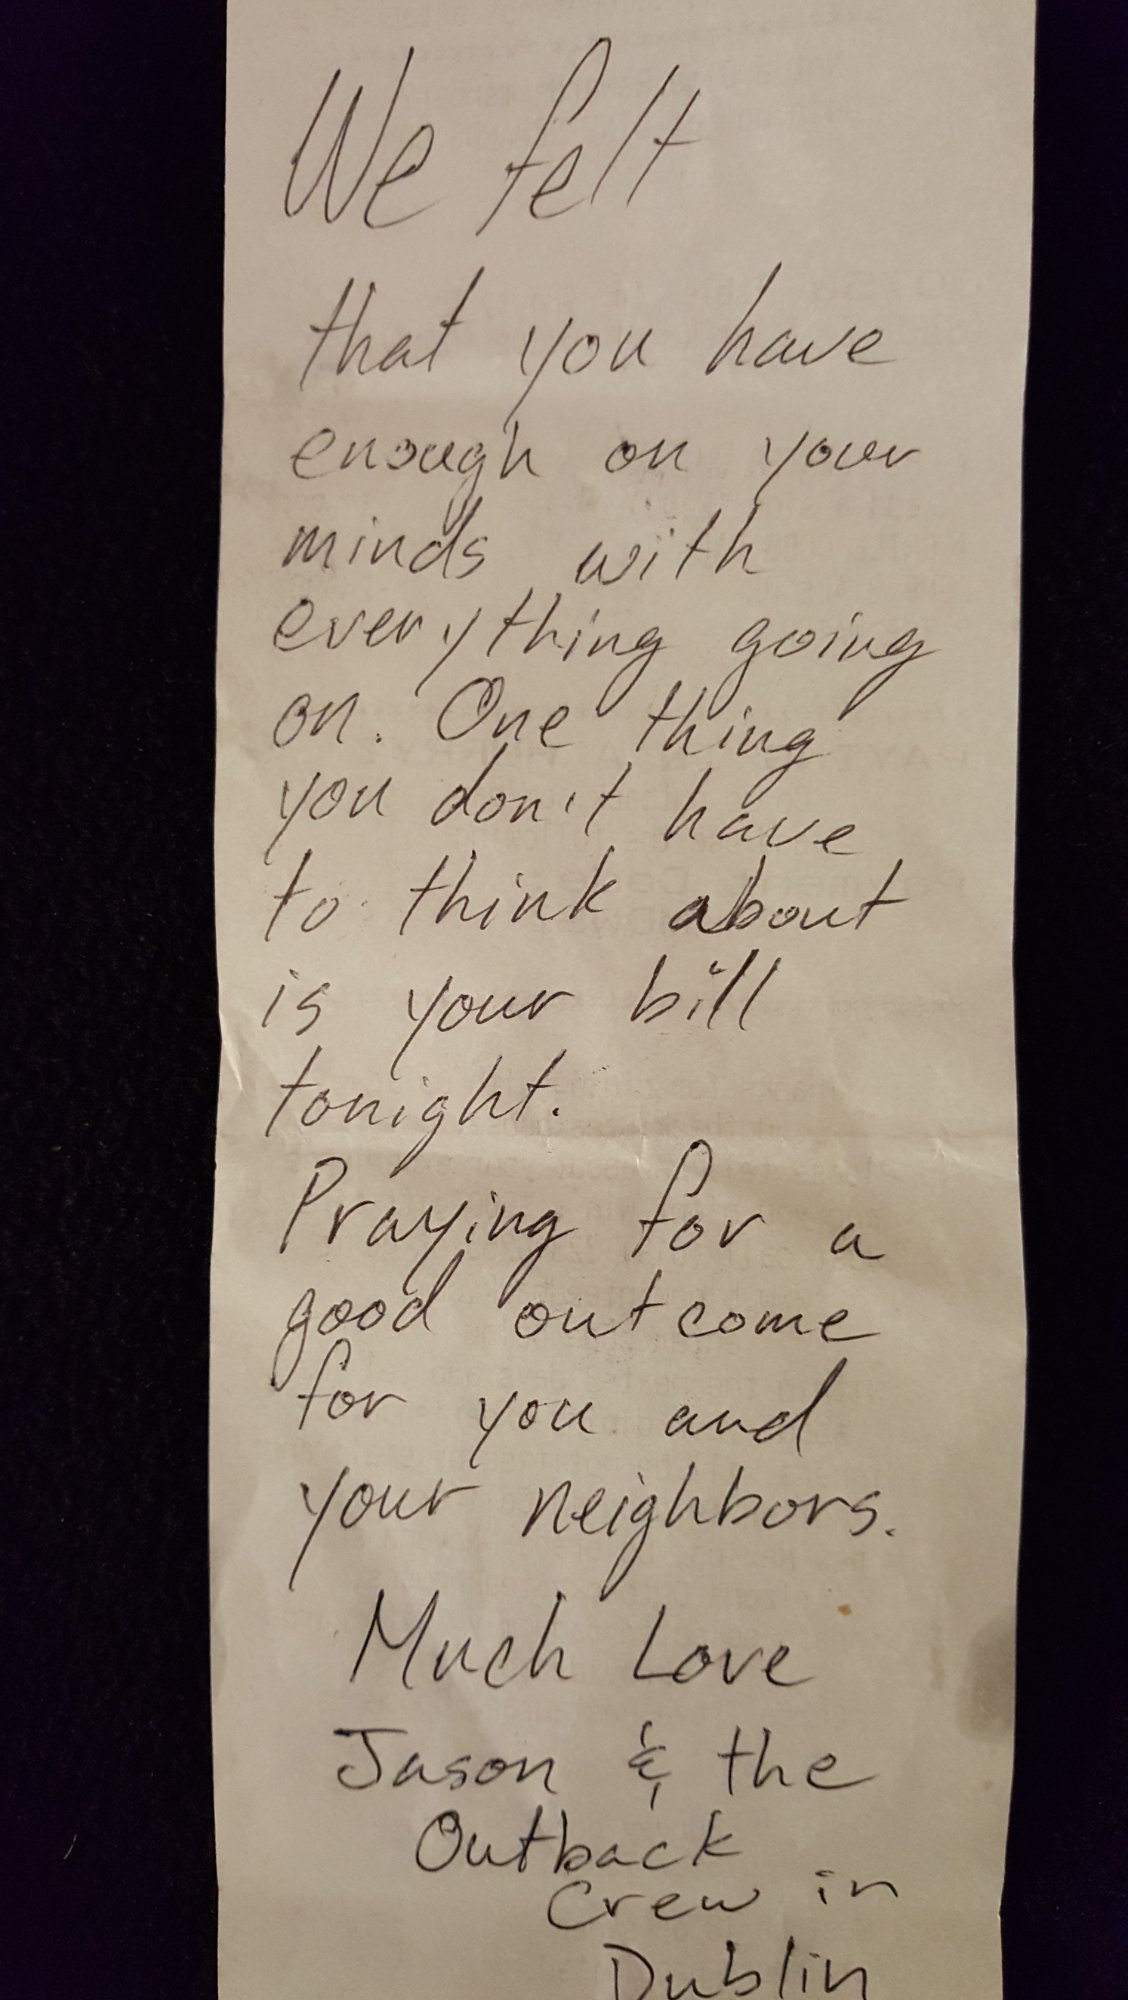 We felt
that you have
enough on your
minds with
everything going
on. One thing
you don't have
to think about
is your bill
tonight.
Praying for a
good outcome
for you and
your neighbors.
Much Love
Jason & the
Outback
Crew in
Dublin